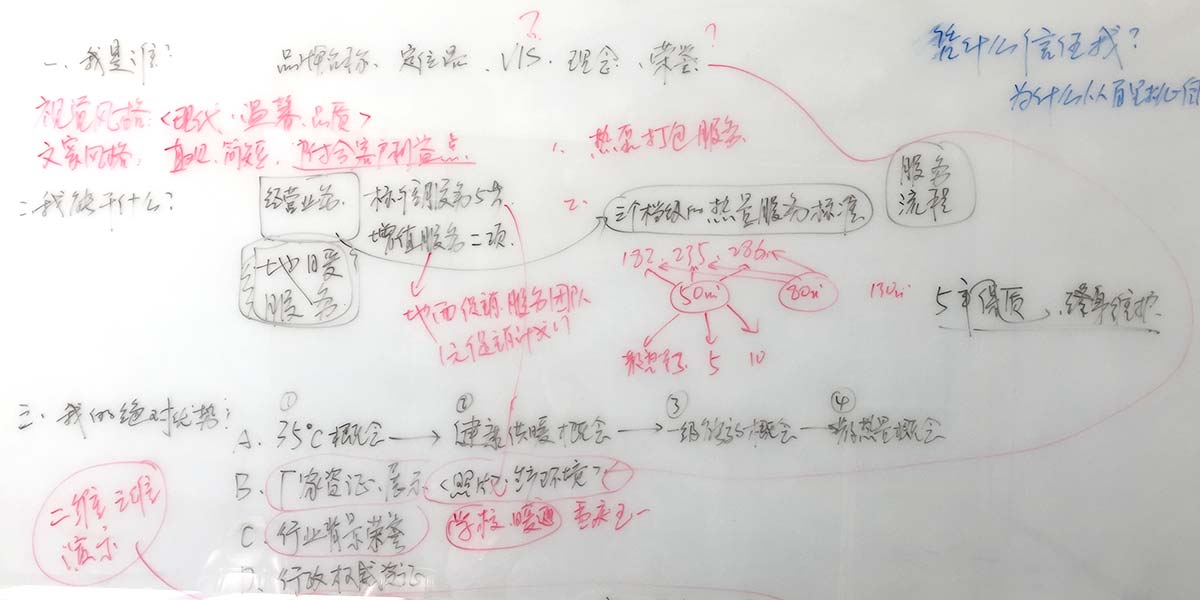 一、我是谁? 品牌名称、定位品、VIS、理念、荣誉 ?
凭什么信任我?
视觉风格:<现代、温馨、品质>
文案风格: 直观、简短、符合客户利益点
1、热泵打包服务
服务流程
二、我能干什么?
经营业务
标准服务5步
增值服务二项
2、三个档级的热量服务标准
地暖?服务
182、235、286
50㎡ 80㎡ 130㎡
5 10
地面促销、服务团队
1元促销计划!?
5年保质、终身维护
三、我的绝对优势:
A、①35℃概念→②健康供暖概念→③一级能效概念→④散热量概念
B、厂家资证、展示<照片、生产环境>
C、行业背景荣誉 学校、暖通
D、行政权威资证
二维三维演示